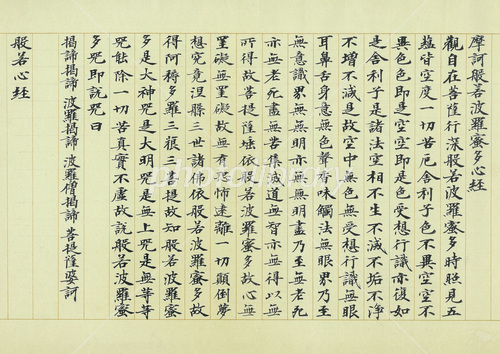 摩訶般若波羅蜜多心経
觀自在菩薩行深般若波羅蜜多時照見五
蘊皆空度一切苦厄舍利子色不異空空不
異色色即是空空即是色受想行識亦復如
是舍利子是諸法空相不生不滅不垢不淨
不增不減是故空中無色無受想行識無眼
耳鼻舌身意無色聲香味觸法無眼界乃至
無意識界無無明亦無無明盡乃至無老死
亦無老死盡無苦集滅道無智亦無得以無
所得故菩提薩埵依般若波羅蜜多故心無
罣礙無罣礙故無有恐怖遠離一切顛倒夢
想究竟涅槃三世諸佛依般若波羅蜜多故
得阿耨多羅三藐三菩提故知般若波羅蜜
多是大神咒是大明咒是無上咒是無等等
咒能除一切苦真實不虛故說般若波羅蜜
多咒即說咒曰
揭諦揭諦 波羅揭諦 波羅僧揭諦 菩提薩婆訶
般若心経